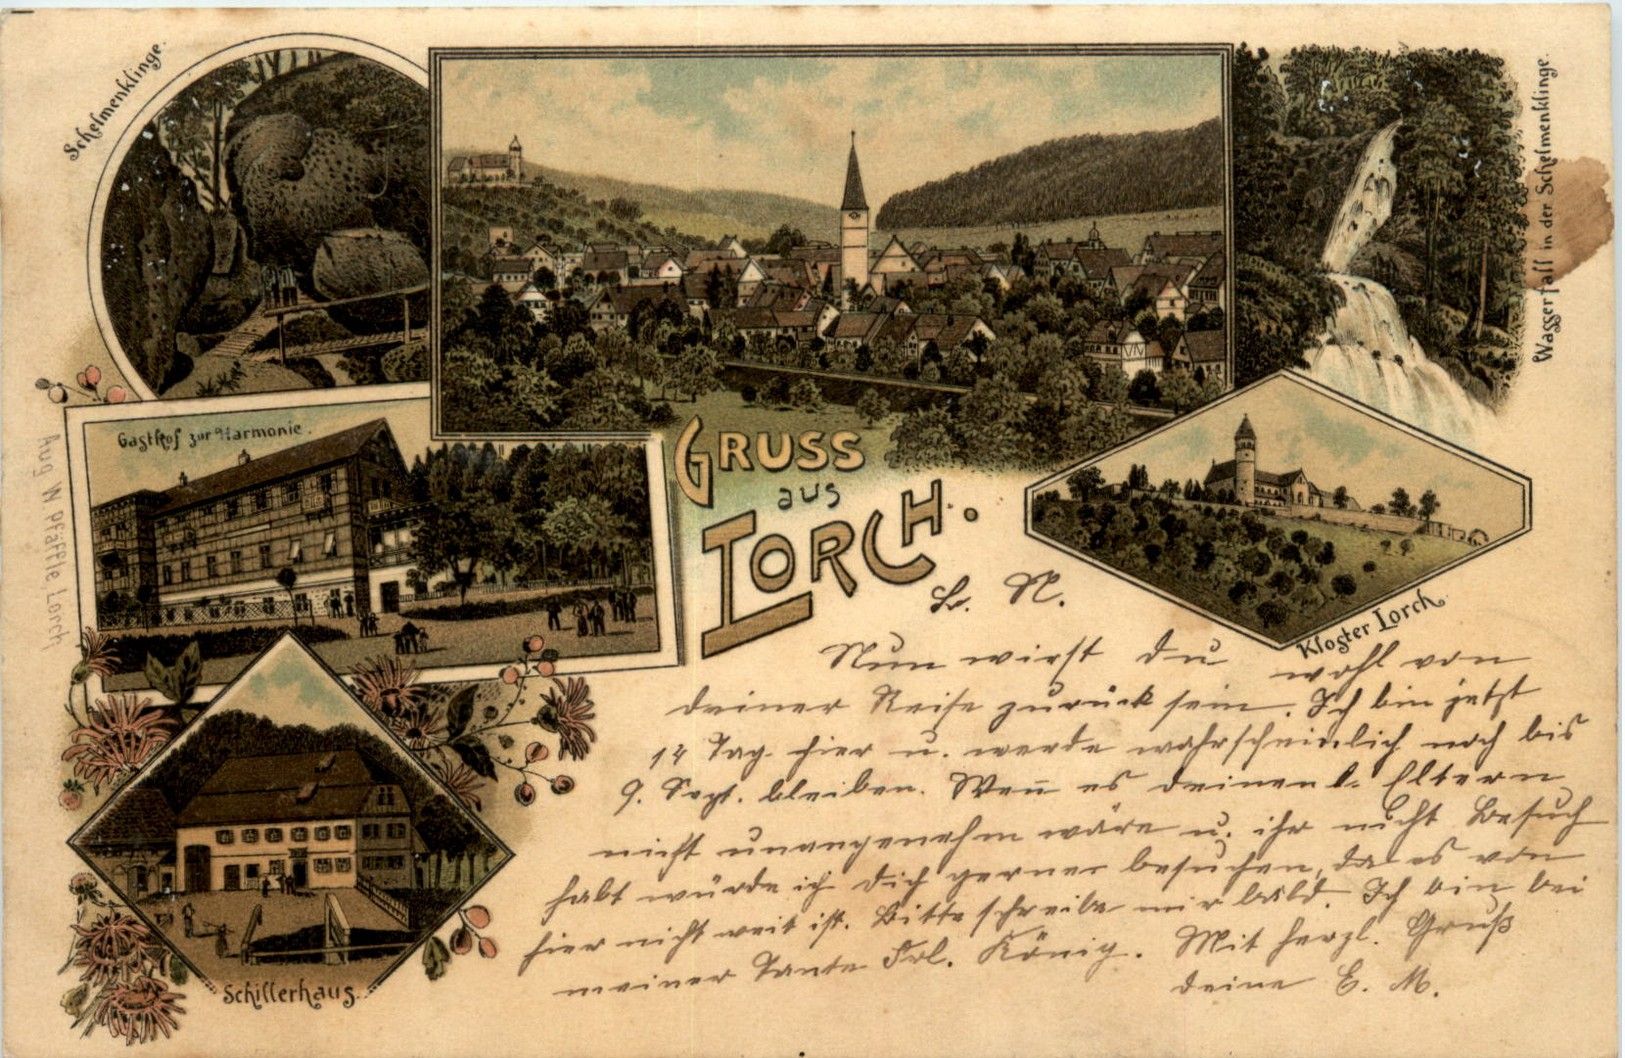 Schelmenklinge.
Wasserfall in der Schelmenklinge.
Gasthof zur Harmonie.
Aug W Pfäffle Lorch
GRUSS
aus
LORCH.
Kloster Lorch.
Schillerhaus.
L. N.
Nun wirst du wohl von
deiner Reise zurück sein. Ich bin jetzt
14 Tag. hier u. werde wahrscheinlich noch bis
9. Sept. bleiben. Wen̄ es deinen l. Eltern
nicht unangenehm wäre u. ihr nicht Besuch
habt würde ich dich gerne besuchen, da es von
hier nicht weit ist. Bitte schreibe mir bald. Ich bin bei
meiner Tante Frl. König. Mit herzl. Gruß
deine E. M.